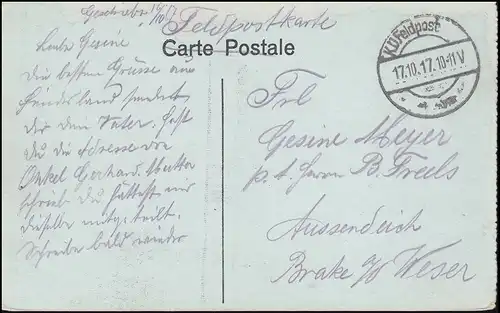 Geschrieben 16/10 17
Feldpostkarte
Carte Postale
K.D. Feldpost
17.10.17.10-11V
Liebe Gesine
Die besten Grüsse aus
Feindesland sendet
dir dein Vater. Hast
du die Adresse von
Onkel Gerhard. Mutter
schrieb Du hättest mir
dieselbe mitgeteilt.
Schreibe bald wieder
Frl
Gesine Meyer
p. A. Herrn B. Freels
Aussendeich
Brake a/d Weser